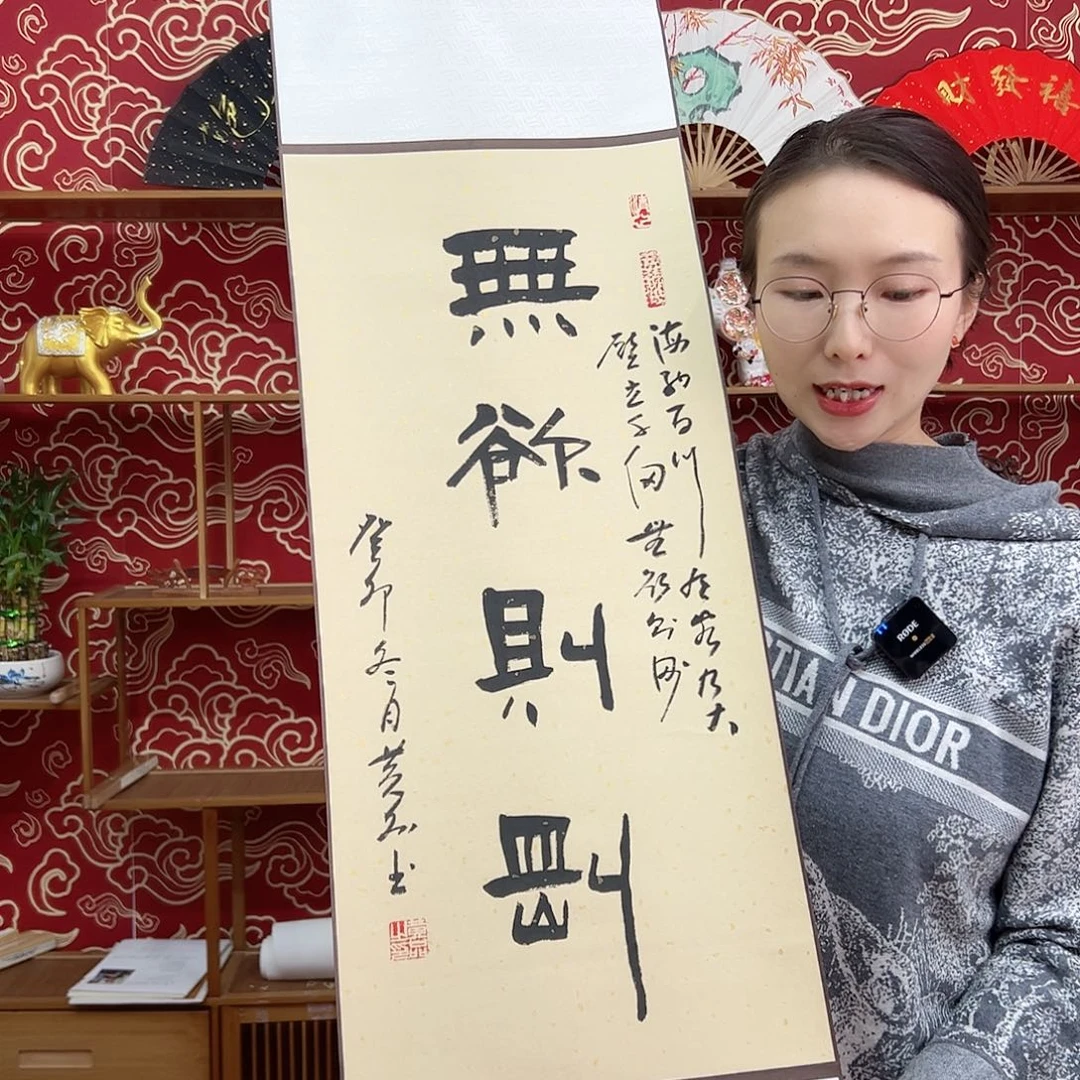 禧發財
海納百川有容乃大
壁立千仞無欲則剛
無欲則剛
癸卯冬月黃
書
RØDE
TIAN DIOR